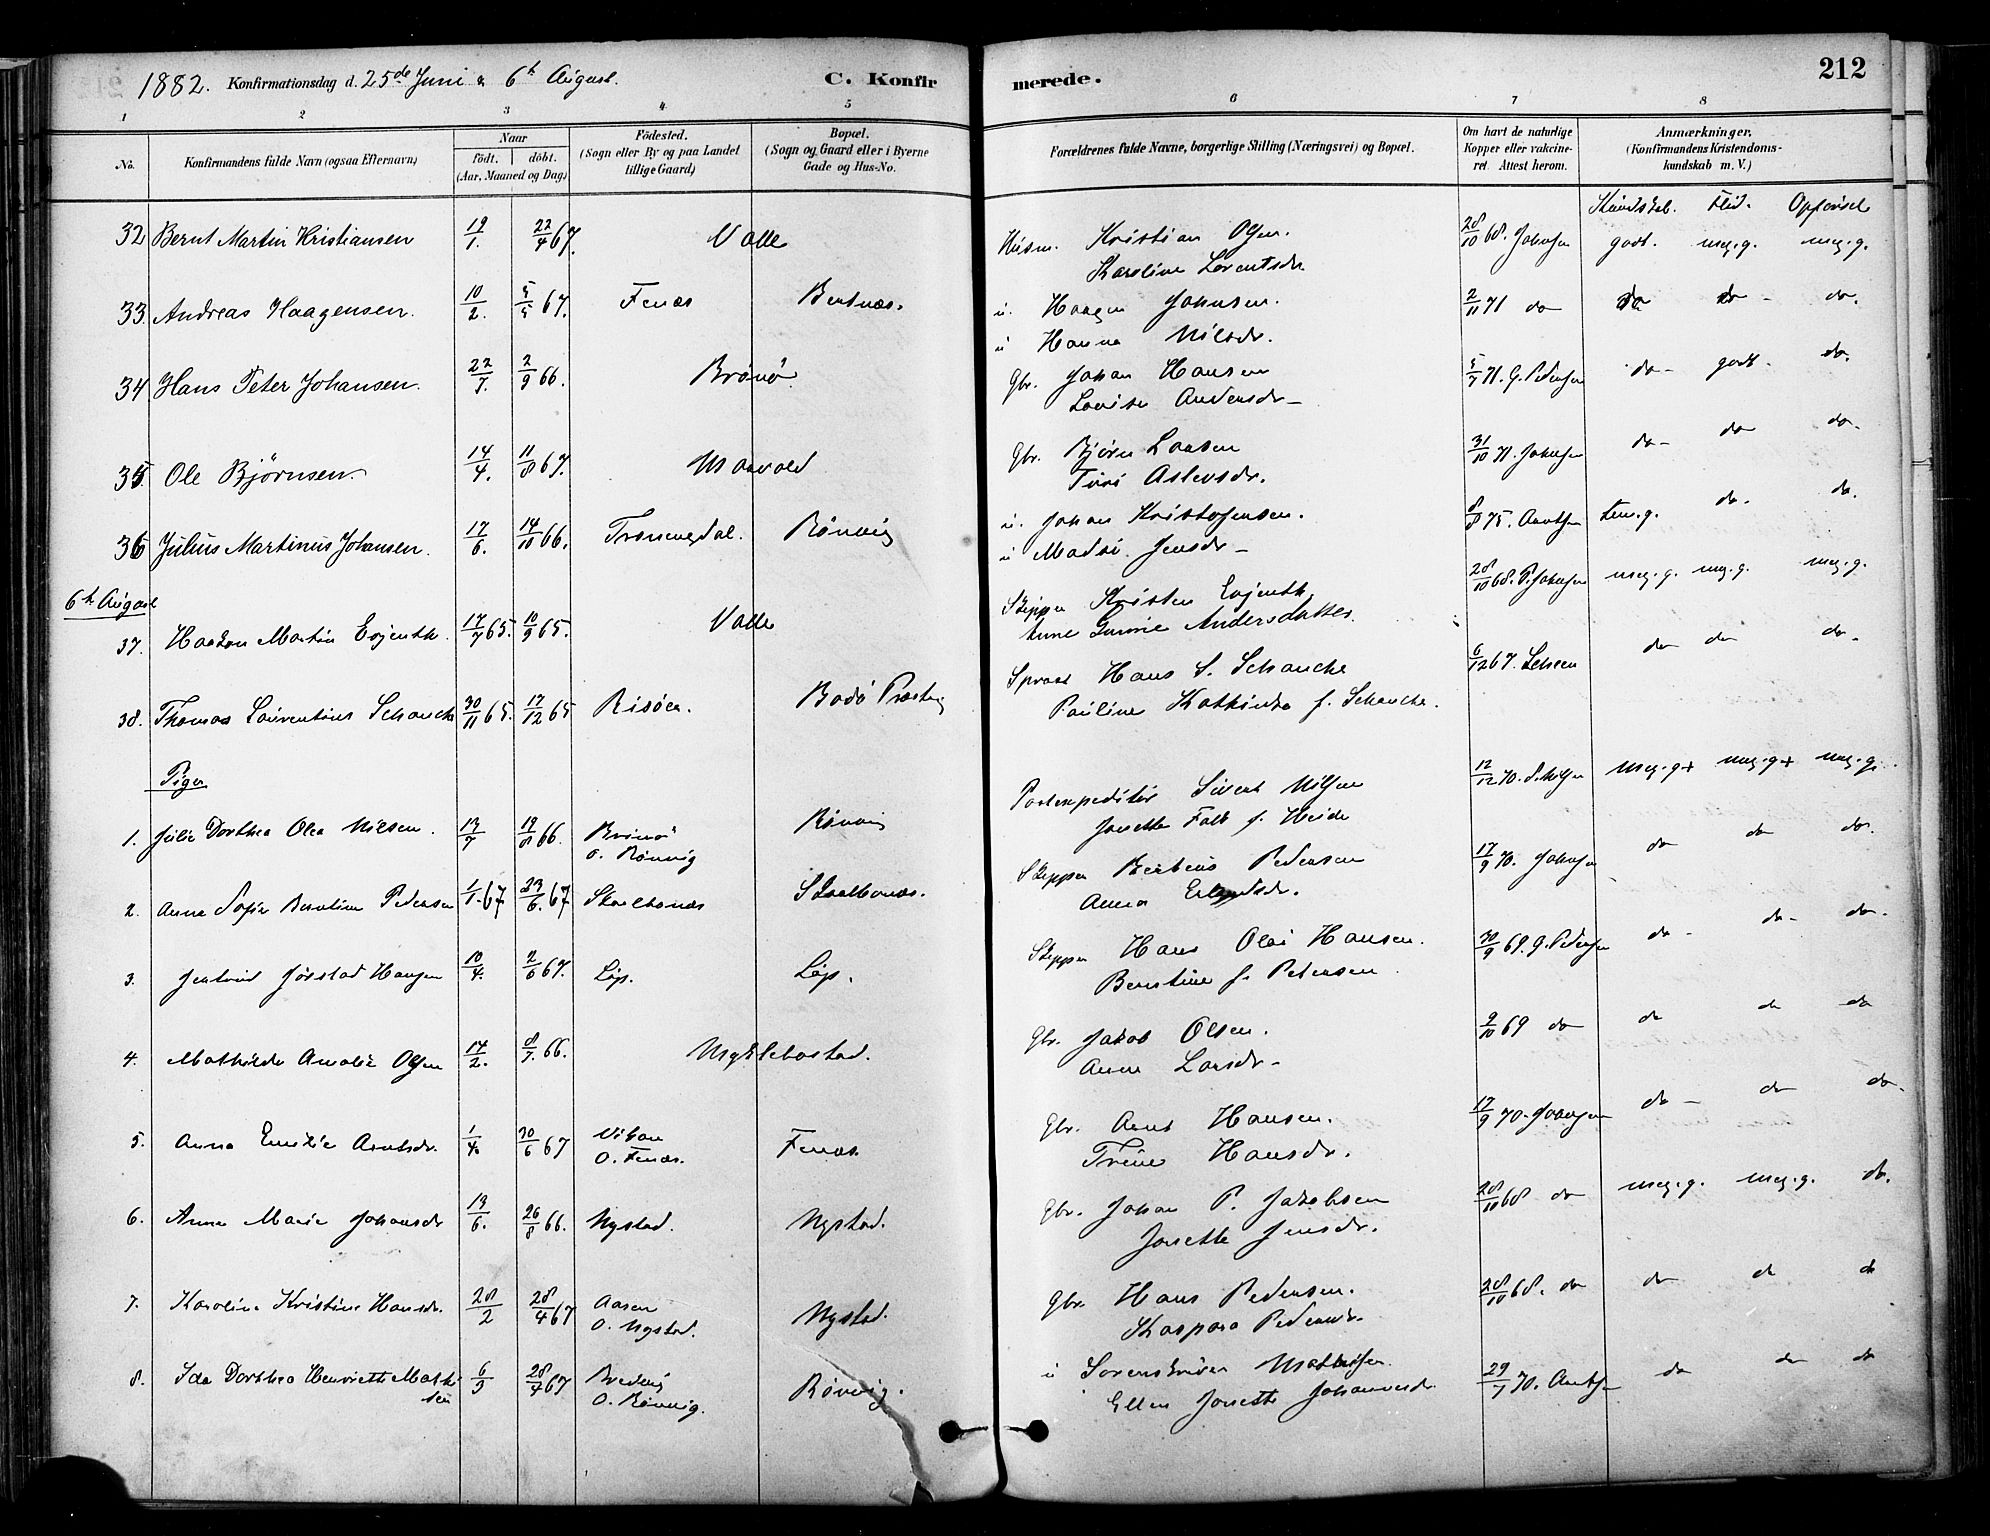 1882. Konfirmationsdag d. 25de Juni & 6te August. C. Konfirmerede. 212
1 2 3 4 5 6 7 8
No. Konfirmandens fulde Navn (ogsaa Efternavn) Naar födt. döbt. (Aar, Maaned og Dag) Födested. (Sogn eller By og paa Landet tillige Gaard) Bopæl. (Sogn og Gaard eller i Byerne Gade og Hus-No. Forældrenes fulde Navne, borgerlige Stilling (Næringsvei) og Bopæl. Om havt de naturlige Kopper eller vakcineret Attest herom. Anmærkninger. (Konfirmandens Kristendomskundskab m. V.)
Kundskab. Flid. Opførsel
32 Bernt Martin Kristiansen 19/1. 22/4 67. Valle Husm. Kristian Olsen. 28/10 68. Johnsen godt. meg. g. meg. g.
Karoline Lorentsdr.
33. Andreas Haagensen. 10/2. 5/5 67. Fenæs Bertnæs. u. Haagen Johnsen. 2/11 71 do do do - do.
u Hanna Nilsdr.
34 Hans Peter Johansen. 22/7. 2/9 66. Brönö. Gbr. Johan Hansen 5/7 71. G. Pedersen do - godt. do.
Lovise Andersdr -
35. Ole Björnsen. 14/4. 11/8 67. Gbr. Björn Larsen 31/10 71. Johnsen do - do do.
Turi Aslevsdr.
36 Julius Martinus Johansen. 17/6. 14/10 66. Rönvig u. Johan Kristofersen. 8/8 75. Arntsen tem. g. do. do.
u Jensdr -
6te August
37. Haakon Martin Evjenth. 17/7 65. 10/9 65. Valle Skipper Kristen Evjenth. 28/10 68. P. Johnsen meg. g. meg. g. meg. g.
Anne Andersdatter.
38. Thomas Laurentius Schanche 30/11 65. 17/12 65 Risöen. Bodö Hans S. Schanche 6/12 67. do do do -
Pauline Kathinka f. Schanche.
Piger
1. Julie Dorthea Olea Nilsen. 13/7 19/8 66. Brönö Rönvig Postexpeditör Sivert Nilsen 12/12 70. meg. g+ meg. g+ meg. g.
o. Rönvig Josette Falk f. Heide
2. Anna Sofie Berntine Pedersen 1/1. 67 23/6. 67 Skaelbonæs Skaelbonæs. Skipper Pedersen 17/9 70. Johnsen do do do.
Anna
3. Jørstad Hansen 10/4. 2/6 67. Löp. Löp. Skipper Hans Olai Hansen. 30/9 69. G. Pedersen do - do - do.
Berntine f. Petersen.
4. Mathilde Amalie Olsen 14/2. 8/7 66. Myklebostad. Gbr. Jakob Olsen. 9/10 69 do do do do
Anne Larsdr -
5. Anna Emilie Arntsdr. 1/4. 30/6 67 Vikan Fenæs Gbr. Arnt Hansen. 17/9 70. do - do do.
O. Fenæs. Trine Hansdr.
6. Anna Marie Johansdr 13/6. 26/8 66. Nystad. Nystad. Gbr. Johan P. Jakobsen 28/10 68 do meg. g. meg. g. do.
Josette Jensdr.
7. Karoline Kristine Hansdr. 28/2 28/4 67 Aasen Nystad. Gbr. Hans Pedersen. 28/10 68. do do do do
O. Nystad. Kaspara Pedersdr.
8. Ida Dorthea Henriette Mathisen 6/3 28/4 67 Rönvig. u Sorenskriver Mathisen. 29/7 70. Arntsen do do do
O. Rönvig. Ellen Josette Johannesdr